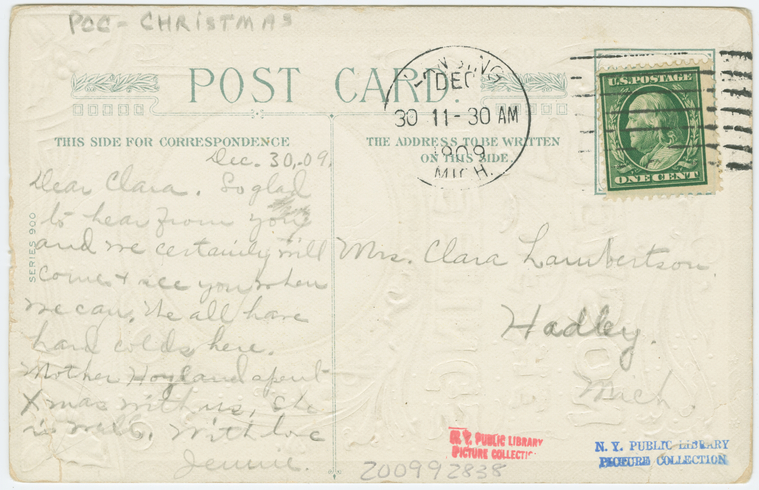 PCC - CHRISTMAS
POST CARD
LANSING,
DEC
30 11-30 AM
1909
MICH.
U.S. POSTAGE
ONE CENT
THIS SIDE FOR CORRESPONDENCE
THE ADDRESS TO BE WRITTEN
ON THIS SIDE.
SERIES 900
Dec. 30, 09.
Dear Clara. So glad
to hear from you
and we certainly will
come & see you when
we can. We all have
hard colds here.
Mother Hoyland spent
Xmas with us, She
is well. With love
Jennie.
Mrs. Clara Lambertson.
Hadley.
Mich.
N.Y. PUBLIC LIBRARY
PICTURE COLLECTION
N. Y. PUBLIC LIBRARY
PICTURE COLLECTION
200992838